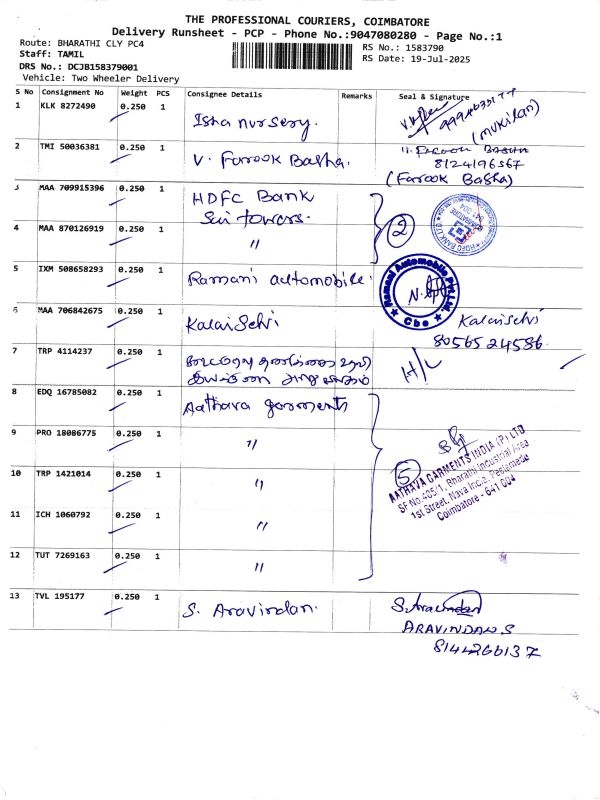 THE PROFESSIONAL COURIERS, COIMBATORE
Delivery Runsheet - PCP - Phone No.:9047080280 - Page No.:1
Route: BHARATHI CLY PC4
RS No.: 1583790
Staff: TAMIL
RS Date: 19-Jul-2025
DRS No.: DCJB158379001
Vehicle: Two Wheeler Delivery
S No Consignment No Weight PCS Consignee Details Remarks Seal & Signature
1 KLK 8272490 0.250 1 Isha nursery.
(MUKILAN)
2 TMI 50036381 0.250 1 V. Farook Basha.
8124196567
(Farook Basha)
3 MAA 709915396 0.250 1 HDFC Bank
Sri towers.
2
4 MAA 870126919 0.250 1 "
5 IXM 508658293 0.250 1 Ramani automobile.
Ramani Automobile Pvt.Ltd.
Cbe
6 MAA 706842675 0.250 1 KalaiSelvi
KalaiSelvi
8056524586
7 TRP 4114237 0.250 1
H/L
8 EDQ 16785082 0.250 1 Aathava garments
9 PRO 18086775 0.250 1 "
5
AATHAVA GARMENTS INDIA (P) LTD
SF No.405/1, Bharathi Industrial Area
1st Street, Nava India, Peelamedu
Coimbatore - 641 004
10 TRP 1421014 0.250 1 "
11 ICH 1060792 0.250 1 "
12 TUT 7269163 0.250 1 "
13 TVL 195177 0.250 1 S. Aravindan.
S. Aravindan
ARAVINDAN S
8144266137